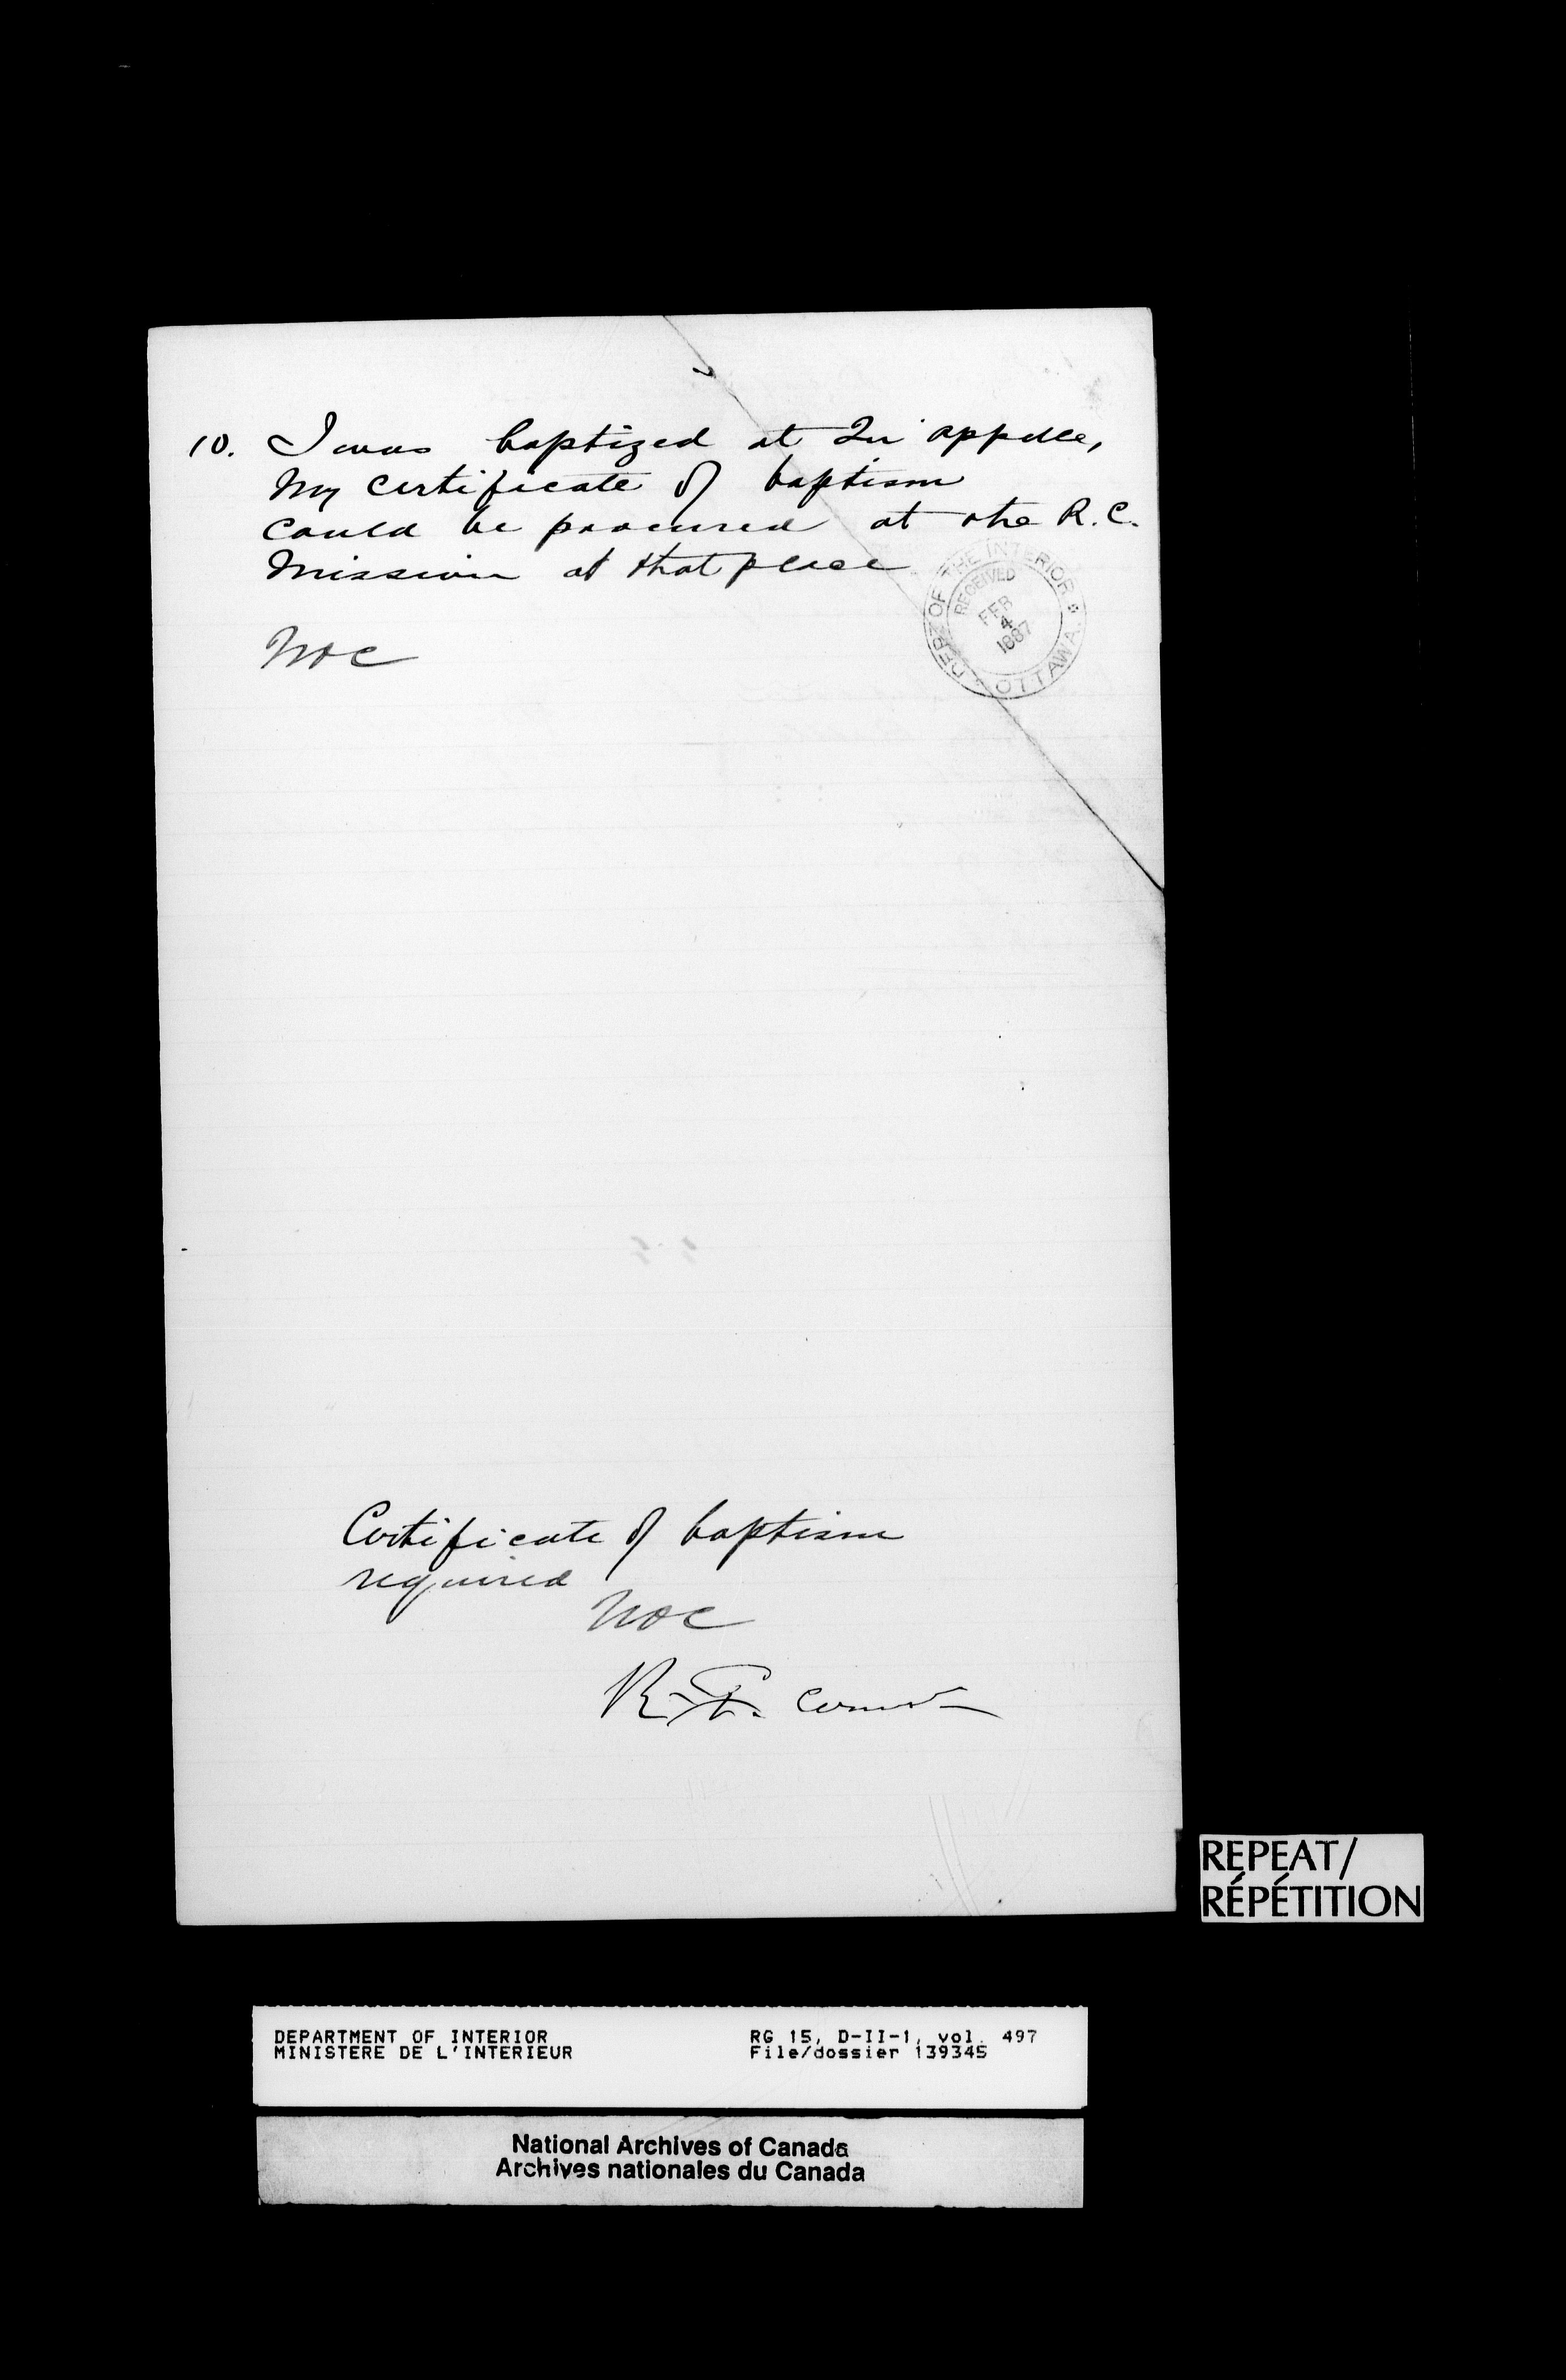 10. I was baptized at Qu'appelle,
My certificate of baptism
could be procured at the R.C.
Mission at that place
DEPT OF THE INTERIOR
RECEIVED
FEB
4
1887
OTTAWA.
Certificate of baptism
required
REPEAT/
RÉPÉTITION
DEPARTMENT OF INTERIOR
MINISTERE DE L'INTERIEUR
RG 15, D-II-1, vol. 497
File/dossier 139345
National Archives of Canada
Archives nationales du Canada